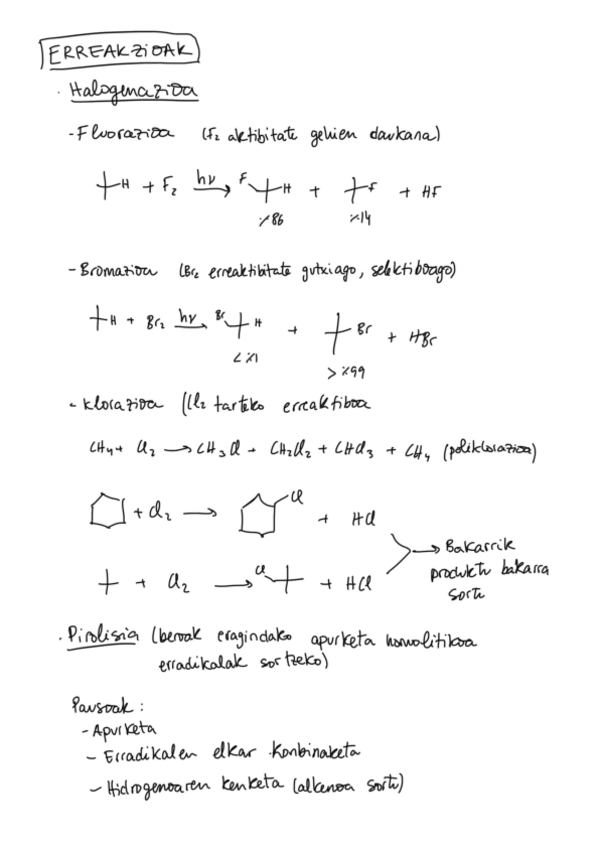 ERREAKZIOAK
· Halogenazioa
- Fluorazioa (F₂ aktibitate gehien daukana)
H + F₂ hν → F H + F + HF
%86 %14
- Bromazioa (Br₂ erreaktibitate gutxiago, selektiboago)
H + Br₂ hν → Br H + Br + HBr
< %1
> %99
- Klorazioa (Cl₂ tarteko erreaktiboa
CH₄ + Cl₂ → CH₃Cl + CH₂Cl₂ + CHCl₃ + CH₄ (poliklorazioa)
+ Cl₂ → Cl + HCl
→ Bakarrik
produktu bakarra
sortu
+ Cl₂ → Cl + HCl
· Pirolisia (beroak eragindako apurketa homolitikoa
erradikalak sortzeko)
Pausoak :
- Apurketa
- Erradikalen elkar konbinaketa
- Hidrogenoaren kenketa (alkenoa sortu)